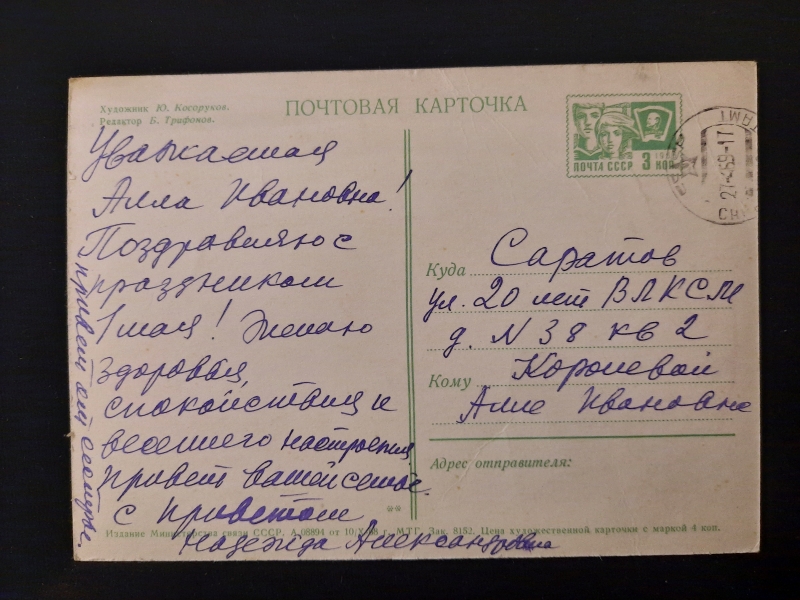 Художник Ю. Косоруков.
Редактор Б. Трифонов.
ПОЧТОВАЯ КАРТОЧКА
ПОЧТА СССР 3 КОП
27-4-69-17
Уважаемая
Алла Ивановна!
Поздравляю с
праздником
1 мая! Желаю
здоровья,
спокойствия и
весеннего настроения
Привет вашей семье.
с приветом
Надежда Александровна
привет от семьи.
Куда Саратов
ул. 20 лет ВЛКСМ
д. N 38 кв 2
Кому Королевой
Алле Ивановне
Адрес отправителя:
**
Издание Министерства связи СССР. А 08894 от 10/X-68 г. МТГ. Зак. 8152. Цена художественной карточки с маркой 4 коп.